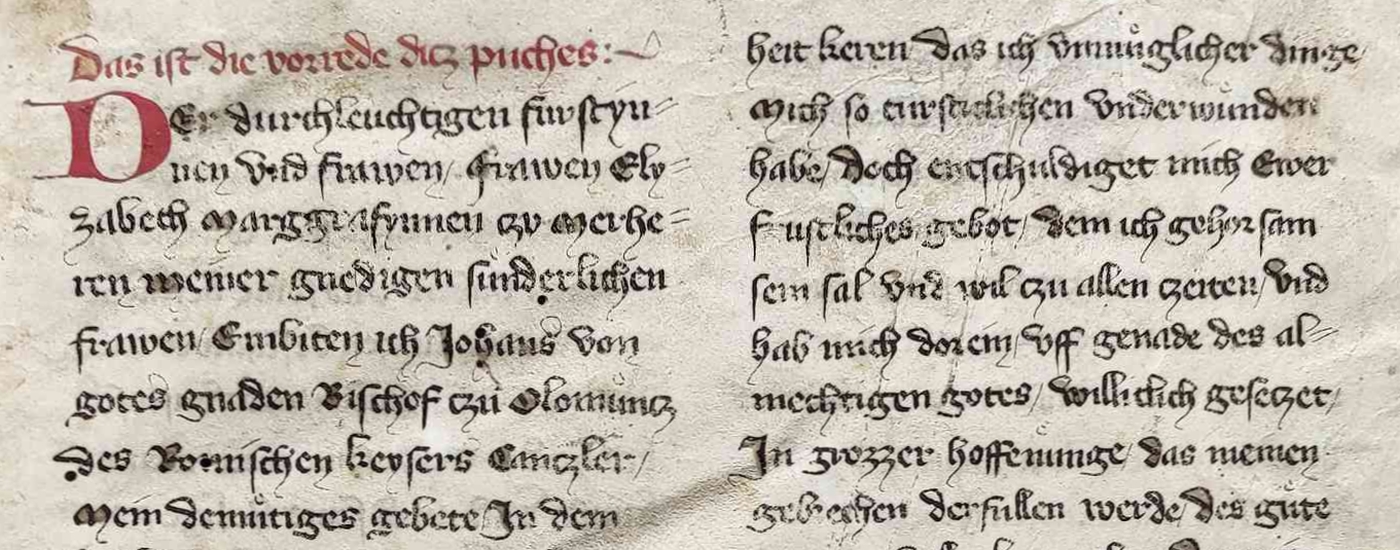 Das ist die vorrede dicz puches:
DEr durchleuchtigen furstyn=
nen vnd frawen/ frawen Ely=
zabeth Marggrafynnen czv Merhe=
ren meiner gnedigen sunderlichen
frawen/ Embiten ich Johans von
gotes gnaden Bischof czů Olomuncz
des Romischen keysers Canczler/
Mein demůtiges gebete/ In dem
heit keren das ich vnmůglicher dinge
Mich so turstiklichen vnderwunden
habe/ Doch entschuldiget mich Ewer
furstliches gebot/ dem ich gehorsam
sein sal vnd wil czu allen czeiten/ vnd
hab mich dorein/ vff genade des al=
mechtigen gotes/ williclich geseczet/
In grozzer hoffenunge/ das meinen
gebrechen derfullen werde/ des gůte